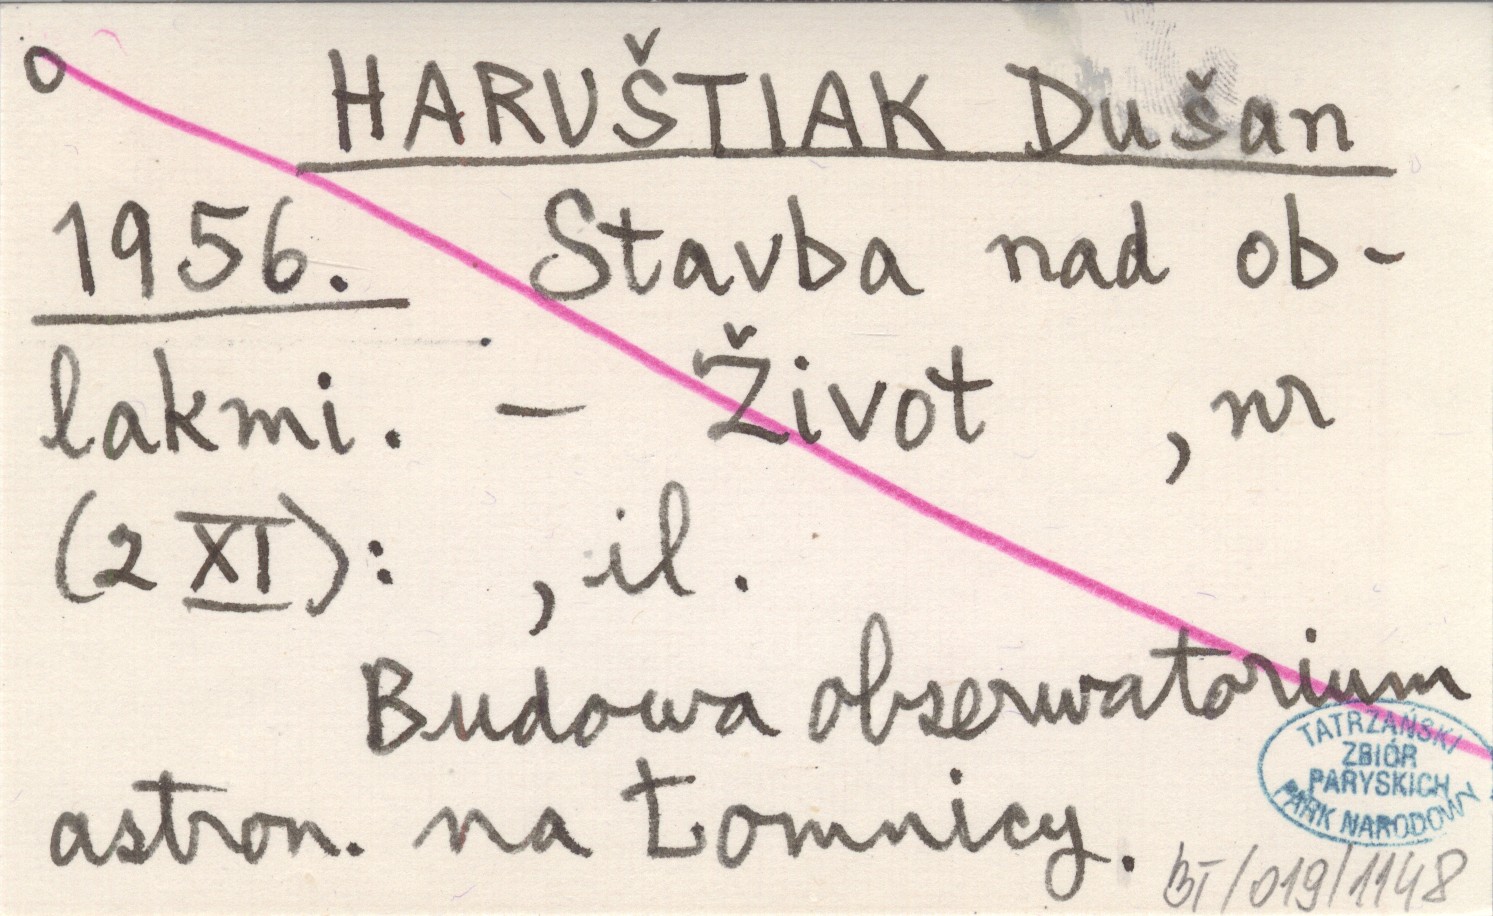 O HARUŠTIAK Dušan
1956. Stavba nad ob-
lakmi. – Život , nr
(2 XI): , il.
Budowa obserwatorium
astron. na Łomnicy.
TATRZAŃSKI
ZBIÓR
PARYSKICH
PARK NARODOWY
BT/019/1148